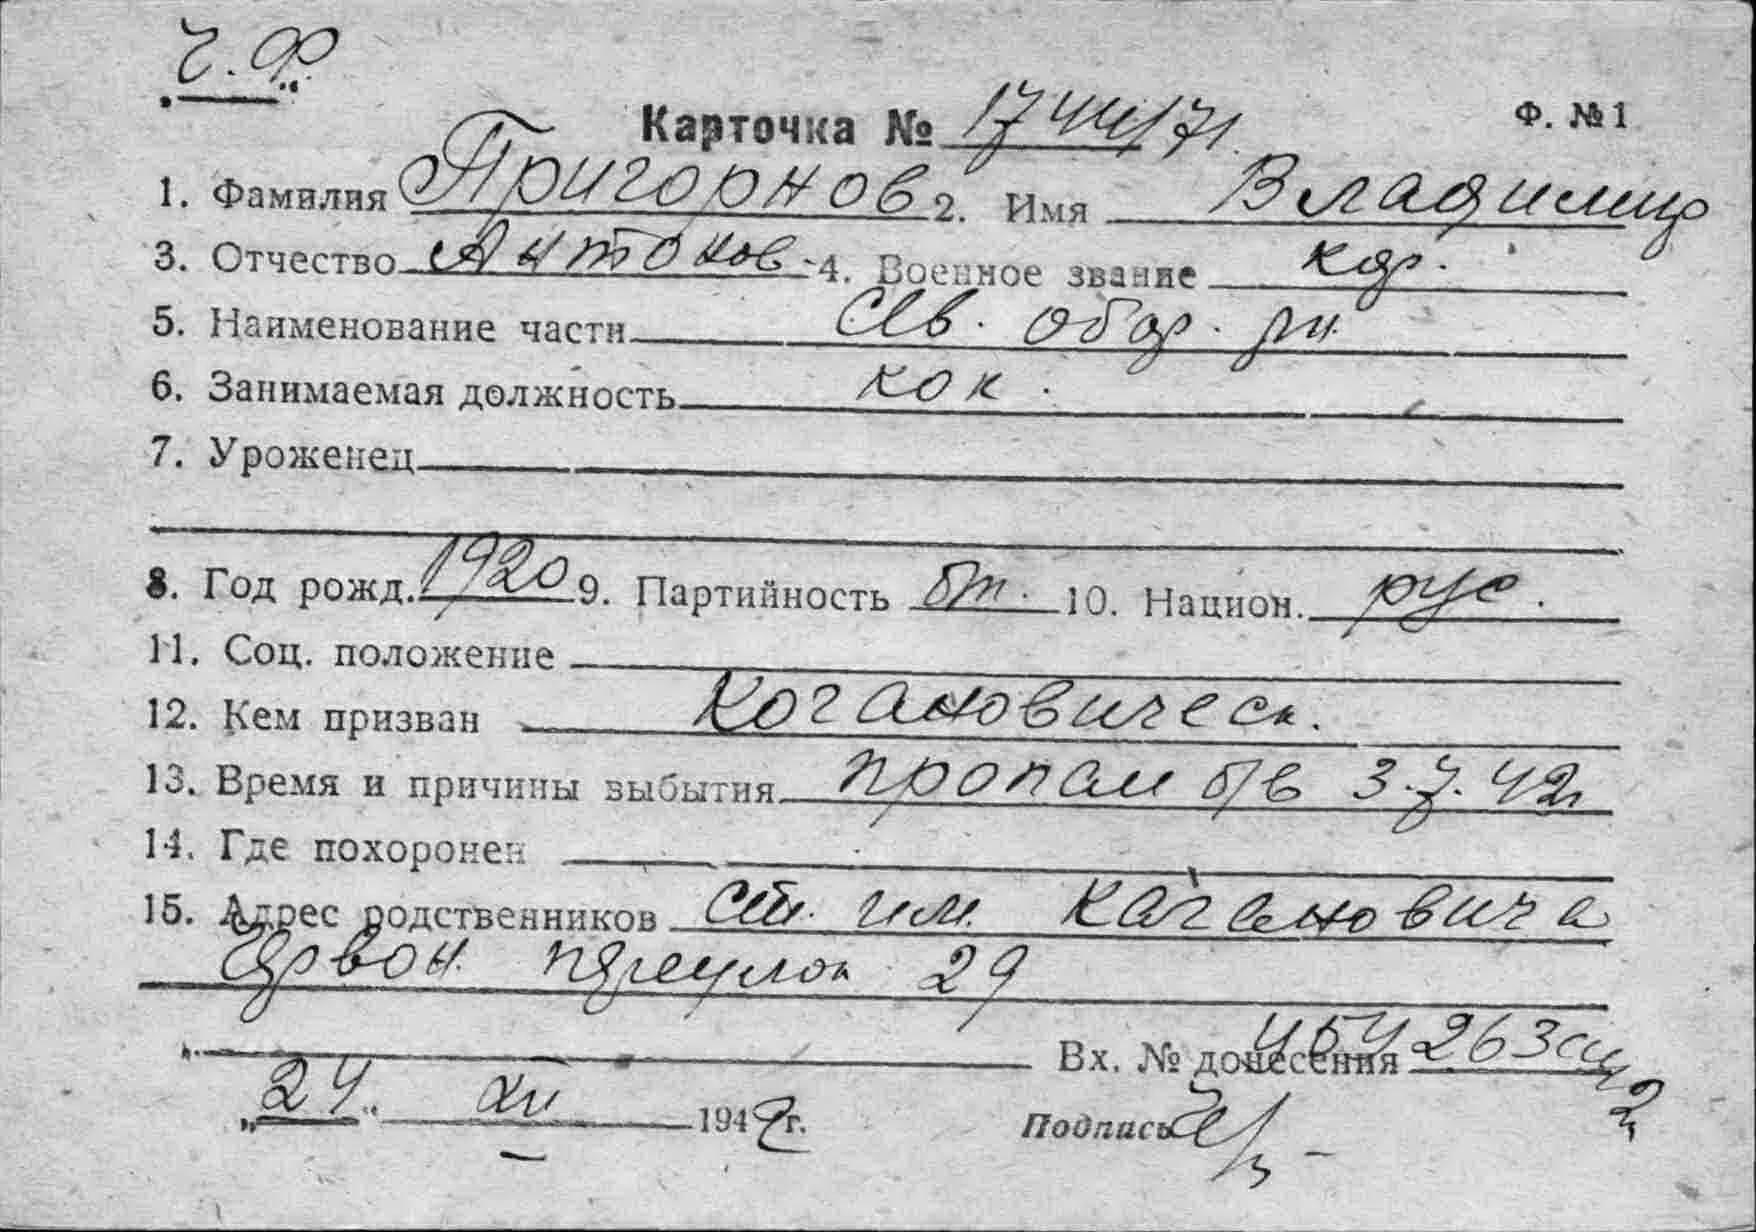 Ч.Ф.
Карточка №
Ф. №1
1. Фамилия Пригорнов 2. Имя Владимир
3. Отчество Антонов. 4. Военное звание кр.
5. Наименование части Св. обор. рн
6. Занимаемая должность кок.
7. Уроженец
8. Год рожд. 1920 9. Партийность бп. 10. Национ. рус.
11. Соц. положение
12. Кем призван Когановическ.
13. Время и причины выбытия пропал б/в 3.7.42г
14. Где похоронен
15. Адрес родственников ст. им. Кагановича
Червон. переулок 29
Вх. № донесения
„24“ XII 194 г.
Подпись